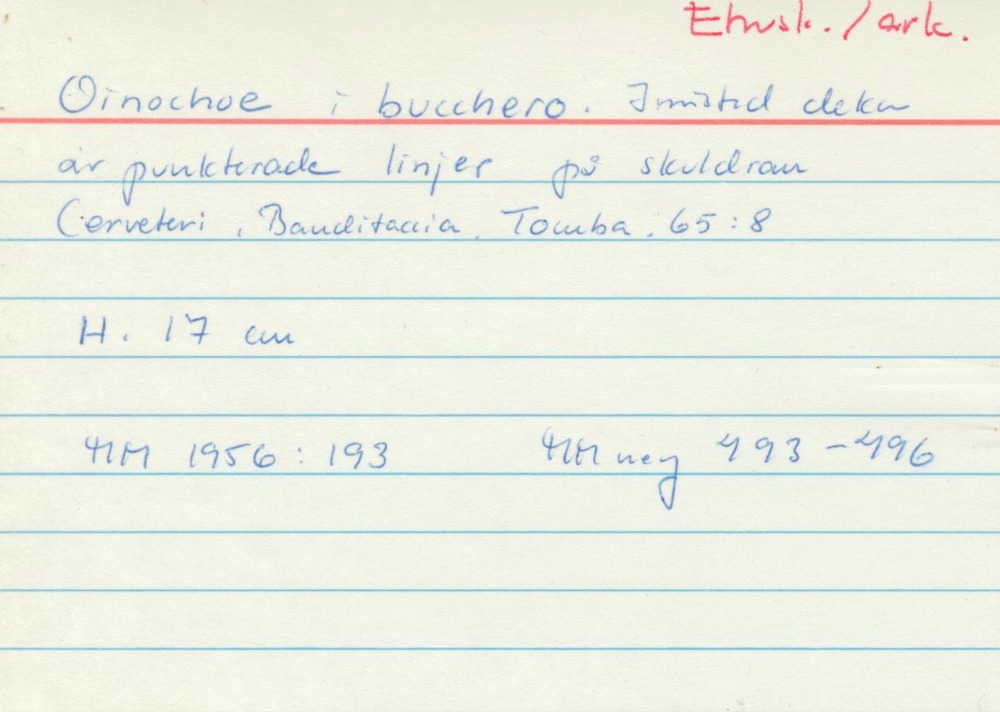 Etrusk. / ark.
Oinochoe i bucchero. Inristad dekor
är punkterade linjer på skuldran
Cerveteri, Banditaccia. Tomba. 65:8
H. 17 cm
MM 1956:193 MM neg 493-496